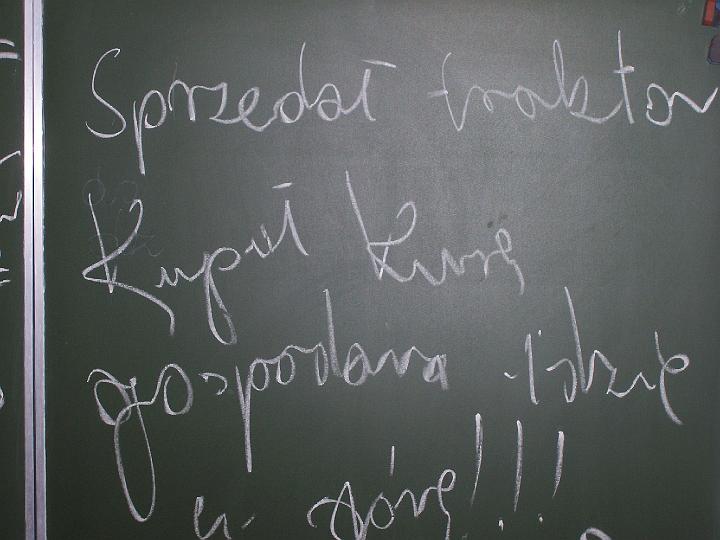 Sprzedał traktor
Kupił kurę
gospodara idzie
w górę!!!